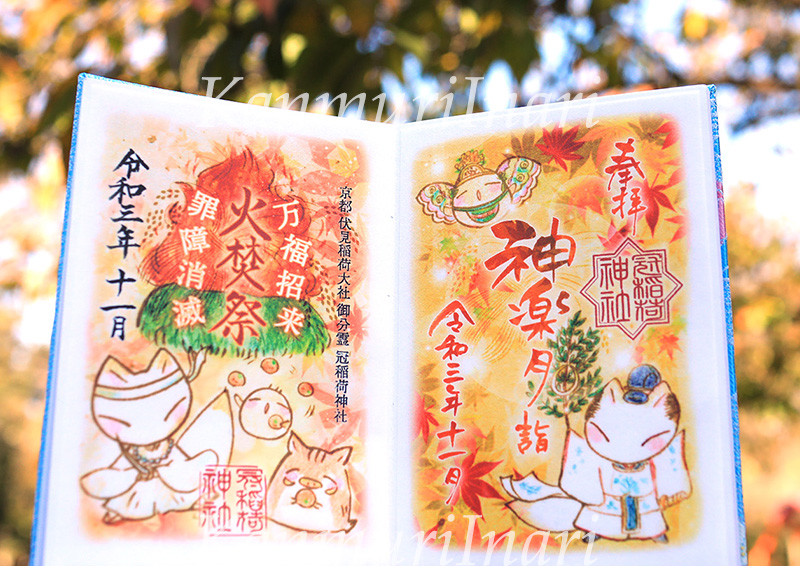 KanmuriInari
奉拝
冠稲荷
神社
神楽月詣
令和三年十一月
京都 伏見稲荷大社 御分霊 冠稲荷神社
万福招来
火焚祭
罪障消滅
令和三年 十一月
冠稲荷
神社
KanmuriInari